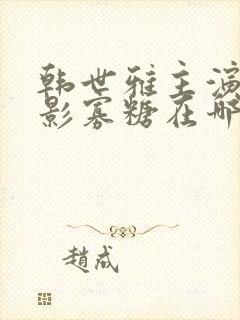 韩世雅主演
影寡糖在哪
趙成